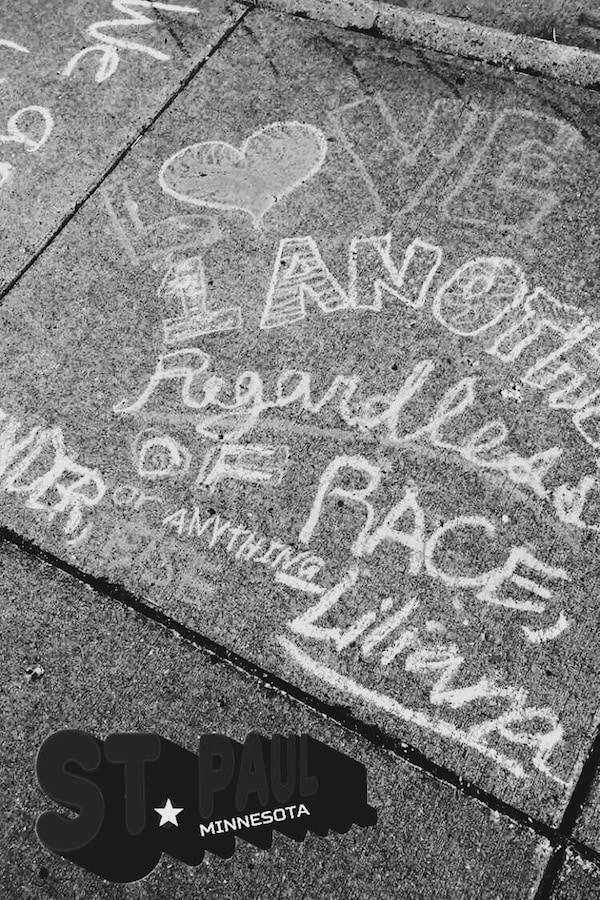 We
LOVE
1 ANOTHE
Regardless
OF RACE,
NDER, or ANYTHING
Liliana
ST PAUL
MINNESOTA